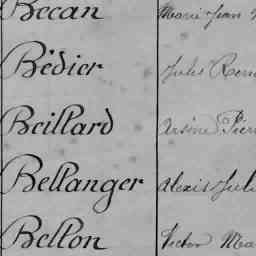 Becan Marie Jean
Bédier Jules
Beillard Arsène Pier
Bellanger Alexis Juli
Bellon Victor Ma